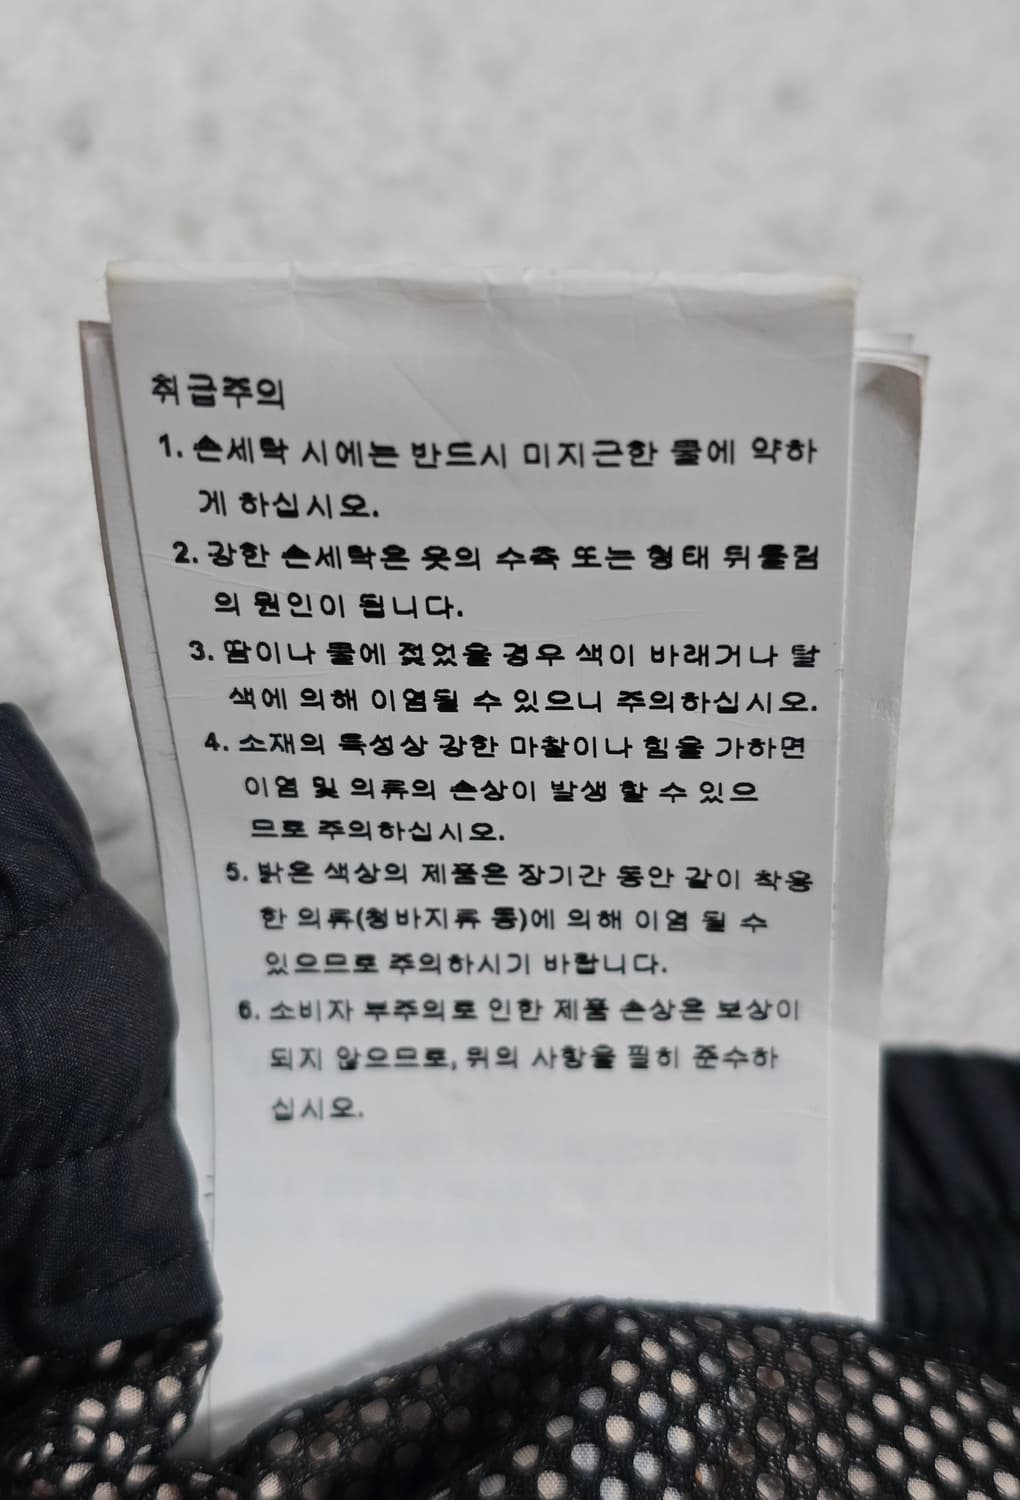 취급주의
1. 손세탁 시에는 반드시 미지근한 물에 약하
게 하십시오.
2. 강한 손세탁은 옷의 수축 또는 형태 뒤틀림
의 원인이 됩니다.
3. 땀이나 물에 젖었을 경우 색이 바래거나 탈
색에 의해 이염될 수 있으니 주의하십시오.
4. 소재의 특성상 강한 마찰이나 힘을 가하면
이염 및 의류의 손상이 발생 할 수 있으
므로 주의하십시오.
5. 밝은 색상의 제품은 장기간 동안 같이 착용
한 의류(청바지류 등)에 의해 이염 될 수
있으므로 주의하시기 바랍니다.
6. 소비자 부주의로 인한 제품 손상은 보상이
되지 않으므로, 위의 사항을 필히 준수하
십시오.